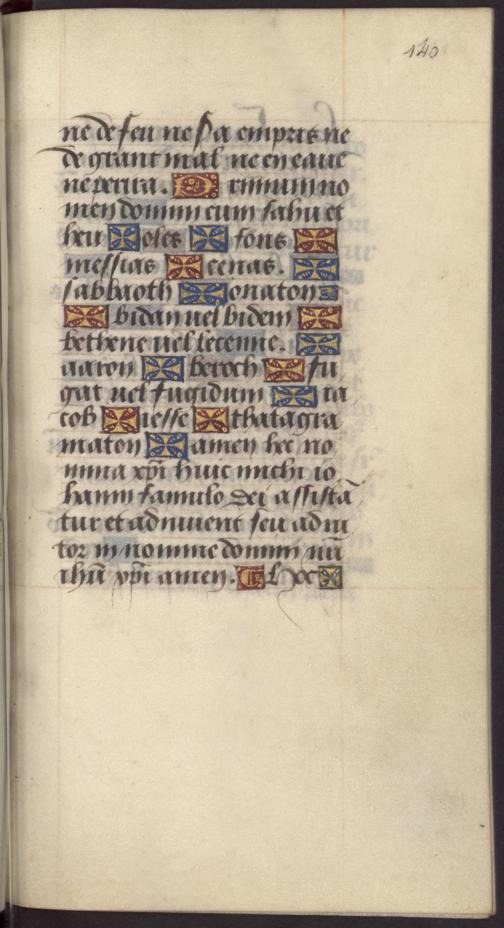 140
ne de feu ne sa empris ne
de grant mal ne en eaue
ne perira. Omnium no
men domini cum salu et
heu ✠ oles ✠ fons ✠
messias ✠ cenas. ✠
sabbaoth ✠ onaton
✠ bidan uel bidem ✠
bethene uel lecenne. ✠
aaron ✠ beroch ✠ fu
gat uel fugidum ✠ ia
cob ✠ iesse ✠ thatagra
maton ✠ amen hec no
mina xpi huic michi io
hanni famulo dei assistā
tur et adiuuent seu adiu
tor in nomine domini nri
ihu xpi amen.